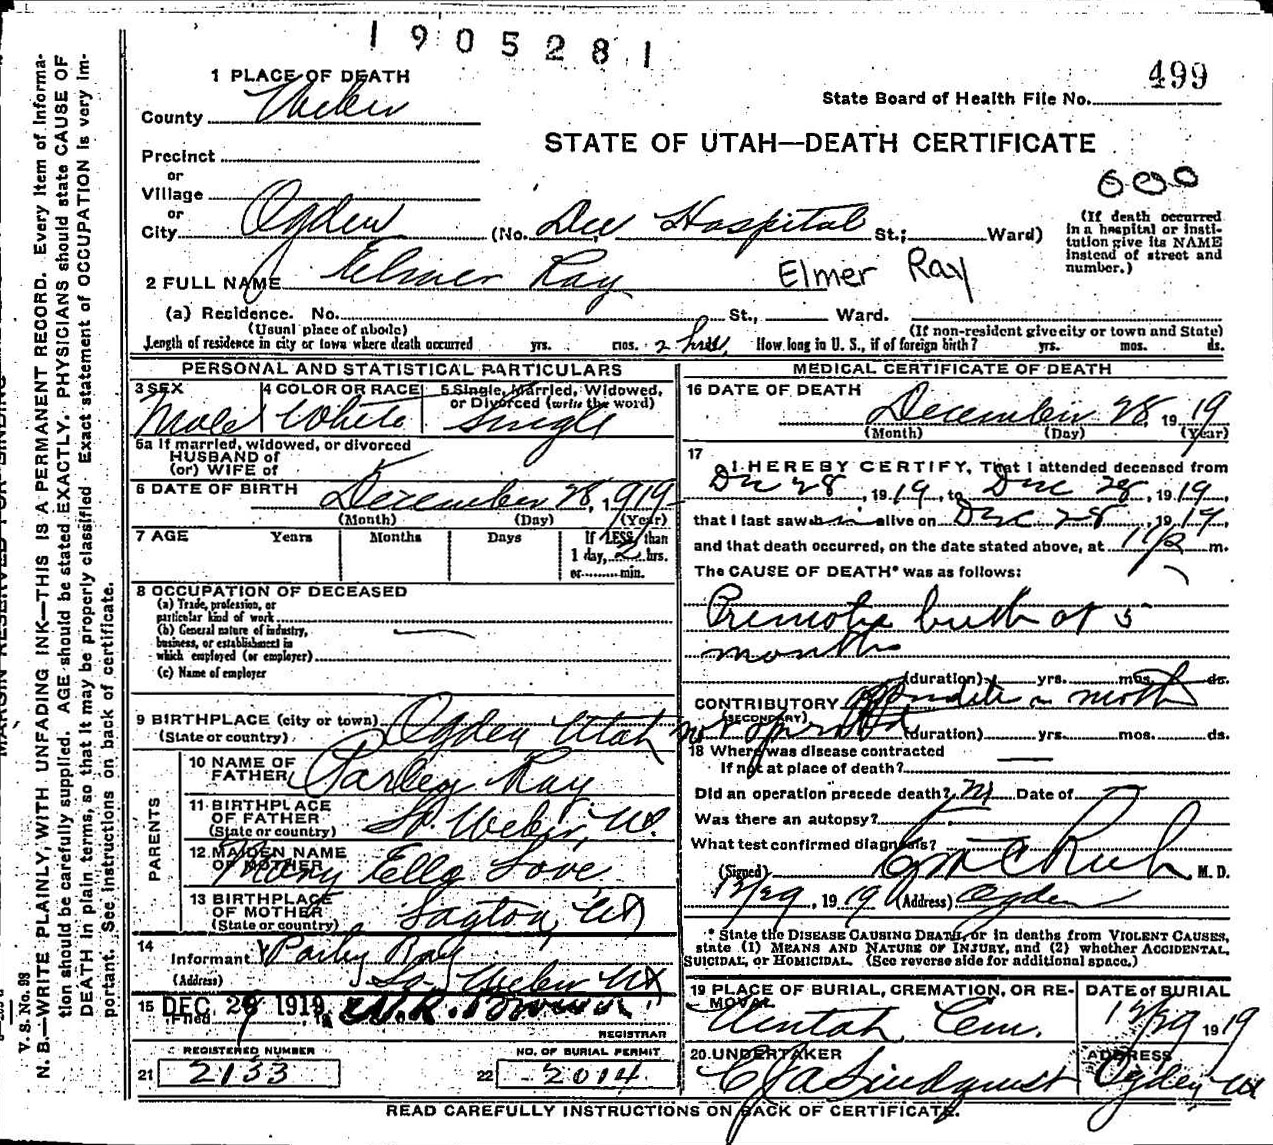 1905281
499
1 PLACE OF DEATH
State Board of Health File No.
County Weber
STATE OF UTAH—DEATH CERTIFICATE
Precinct
or
Village
or
City Ogden (No. Dee Hospital St.; Ward)
(If death occurred in a hospital or institution give its NAME instead of street and number.)
2 FULL NAME Elmer Ray Elmer Ray
(a) Residence. No. St., Ward.
(Usual place of abode) (If non-resident give city or town and State)
Length of residence in city or town where death occurred yrs. mos. 2 hrs. How long in U. S., if of foreign birth? yrs. mos. ds.
PERSONAL AND STATISTICAL PARTICULARS
3 SEX Male
4 COLOR OR RACE White
5 Single, Married, Widowed, or Divorced (write the word) Single
5a If married, widowed, or divorced
HUSBAND of
(or) WIFE of
6 DATE OF BIRTH December 28, 1919
(Month) (Day) (Year)
7 AGE Years Months Days If LESS than 1 day, 2 hrs.
or min.
8 OCCUPATION OF DECEASED
(a) Trade, profession, or
particular kind of work
(b) General nature of industry,
business, or establishment in
which employed (or employer)
(c) Name of employer
9 BIRTHPLACE (city or town) Ogden Utah
(State or country)
PARENTS
10 NAME OF FATHER Parley Ray
11 BIRTHPLACE OF FATHER So. Weber, Ut.
(State or country)
12 MAIDEN NAME OF MOTHER Mary Ella Love
13 BIRTHPLACE OF MOTHER Layton, Ut
(State or country)
14 Informant Parley Ray
(Address) So. Weber Ut
15 DEC 29 1919
Filed
REGISTRAR
REGISTERED NUMBER NO. OF BURIAL PERMIT
21 2133 22 2014
MEDICAL CERTIFICATE OF DEATH
16 DATE OF DEATH
December 28, 1919
(Month) (Day) (Year)
17
I HEREBY CERTIFY, That I attended deceased from
Dec 28, 1919, to Dec 28, 1919,
that I last saw him alive on Dec 28, 1919,
and that death occurred, on the date stated above, at m.
The CAUSE OF DEATH* was as follows:
birth at 5
months
(duration) yrs. mos. ds.
CONTRIBUTORY in moth
(SECONDARY) (duration) yrs. mos. ds.
18 Where was disease contracted
If not at place of death?
Did an operation precede death? Date of
Was there an autopsy?
What test confirmed diagnosis?
(Signed) Rich M. D.
12/29, 1919 (Address) Ogden
* State the DISEASE CAUSING DEATH, or in deaths from VIOLENT CAUSES,
state (1) MEANS AND NATURE OF INJURY, and (2) whether ACCIDENTAL,
SUICIDAL, or HOMICIDAL. (See reverse side for additional space.)
19 PLACE OF BURIAL, CREMATION, OR REMOVAL Uintah Cem.
DATE of BURIAL 12/29 1919
20 UNDERTAKER Lindquist
ADDRESS Ogden Ut
READ CAREFULLY INSTRUCTIONS ON BACK OF CERTIFICATE.
V. S. No. 98
N. B.—WRITE PLAINLY, WITH UNFADING INK—THIS IS A PERMANENT RECORD. Every item of informa-
tion should be carefully supplied. AGE should be stated EXACTLY. PHYSICIANS should state CAUSE OF
DEATH in plain terms, so that it may be properly classified. Exact statement of OCCUPATION is very im-
portant. See instructions on back of certificate.